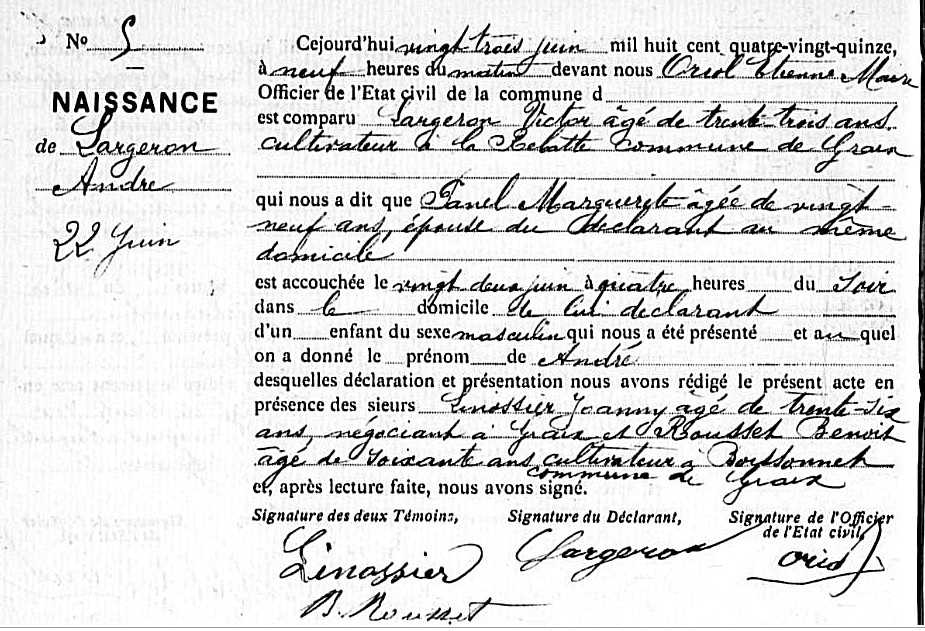 N° 5
NAISSANCE
de Largeron
André
22 Juin
Cejourd'hui vingt-trois juin mil huit cent quatre-vingt-quinze,
à neuf heures du matin devant nous Oriol Etienne Maire
Officier de l'Etat civil de la commune d
est comparu Largeron Victor âgé de trente-trois ans
cultivateur à la commune de Graix
qui nous a dit que Panel Marguerite âgée de vingt-
neuf ans, épouse du déclarant au même
domicile
est accouchée le vingt deux juin à quatre heures du soir
dans le domicile de lui déclarant
d'un enfant du sexe masculin qui nous a été présenté et au quel
on a donné le prénom de André
desquelles déclaration et présentation nous avons rédigé le présent acte en
présence des sieurs Linossier Joanny âgé de trente-six
ans, négociant à Graix et Rousset Benoit
âgé de soixante ans cultivateur à Boissonnet
commune de Graix
et, après lecture faite, nous avons signé.
Signature des deux Témoins, Signature du Déclarant, Signature de l'Officier
de l'Etat civil,
Linossier Largeron Oriol
B. Rousset